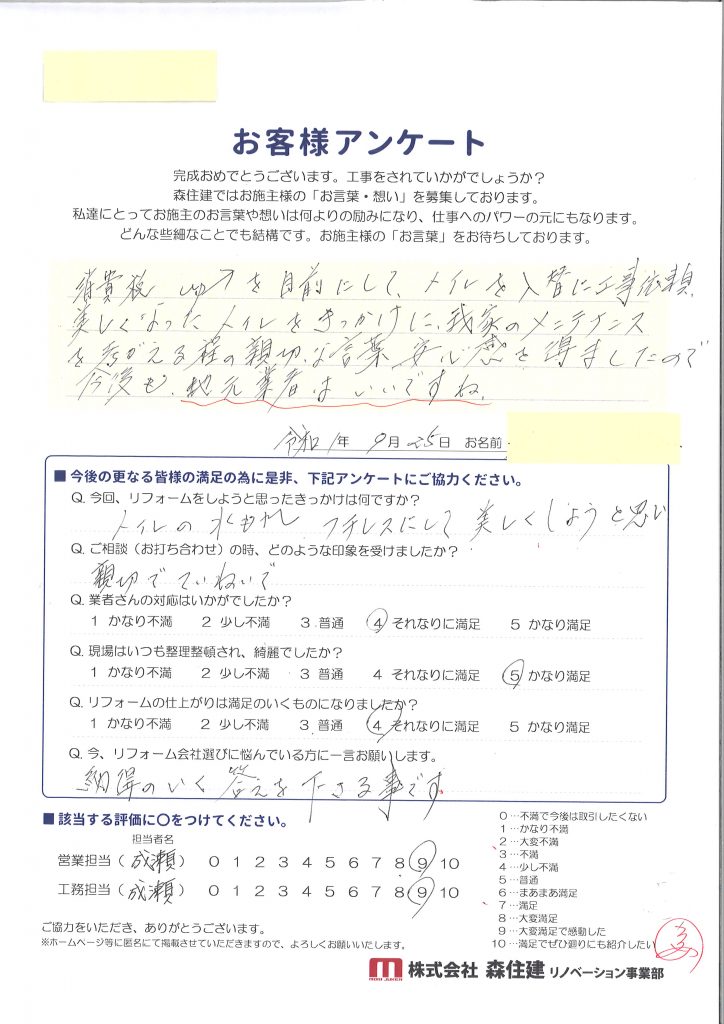 お客様アンケート
完成おめでとうございます。工事をされていかがでしょうか？
森住建ではお施主様の「お言葉・想い」を募集しております。
私達にとってお施主のお言葉や想いは何よりの励みになり、仕事へのパワーの元にもなります。
どんな些細なことでも結構です。お施主様の「お言葉」をお待ちしております。
消費税 up↗を目前にして、トイレを入替に工事依頼、
美しくなったトイレをきっかけに、我家のメンテナンス
を考がえる程の親切な言葉、安心感を得ましたので
今後も、地元業者はいいですね。
令和1年 9月 25日 お名前
■ 今後の更なる皆様の満足の為に是非、下記アンケートにご協力ください。
Q. 今回、リフォームをしようと思ったきっかけは何ですか？
トイレの水もれ フチレスにして美しくしようと思い
Q. ご相談（お打ち合わせ）の時、どのような印象を受けましたか？
親切でていねいで
Q. 業者さんの対応はいかがでしたか？
1 かなり不満 2 少し不満 3 普通 4 それなりに満足 5 かなり満足
Q. 現場はいつも整理整頓され、綺麗でしたか？
1 かなり不満 2 少し不満 3 普通 4 それなりに満足 5 かなり満足
Q. リフォームの仕上がりは満足のいくものになりましたか？
1 かなり不満 2 少し不満 3 普通 4 それなりに満足 5 かなり満足
Q. 今、リフォーム会社選びに悩んでいる方に一言お願いします。
納得のいく答えを下さる事です。
■ 該当する評価に〇をつけてください。
担当者名
営業担当（成瀬） 0 1 2 3 4 5 6 7 8 9 10
工務担当（成瀬） 0 1 2 3 4 5 6 7 8 9 10
0…不満で今後は取引したくない
1…かなり不満
2…大変不満
3…不満
4…少し不満
5…普通
6…まあまあ満足
7…満足
8…大変満足
9…大変満足で感動した
10…満足でぜひ廻りにも紹介したい
ご協力をいただき、ありがとうございます。
※ホームページ等に匿名にて掲載させていただきますので、よろしくお願いいたします。
MORI JUKEN 株式会社 森住建 リノベーション事業部